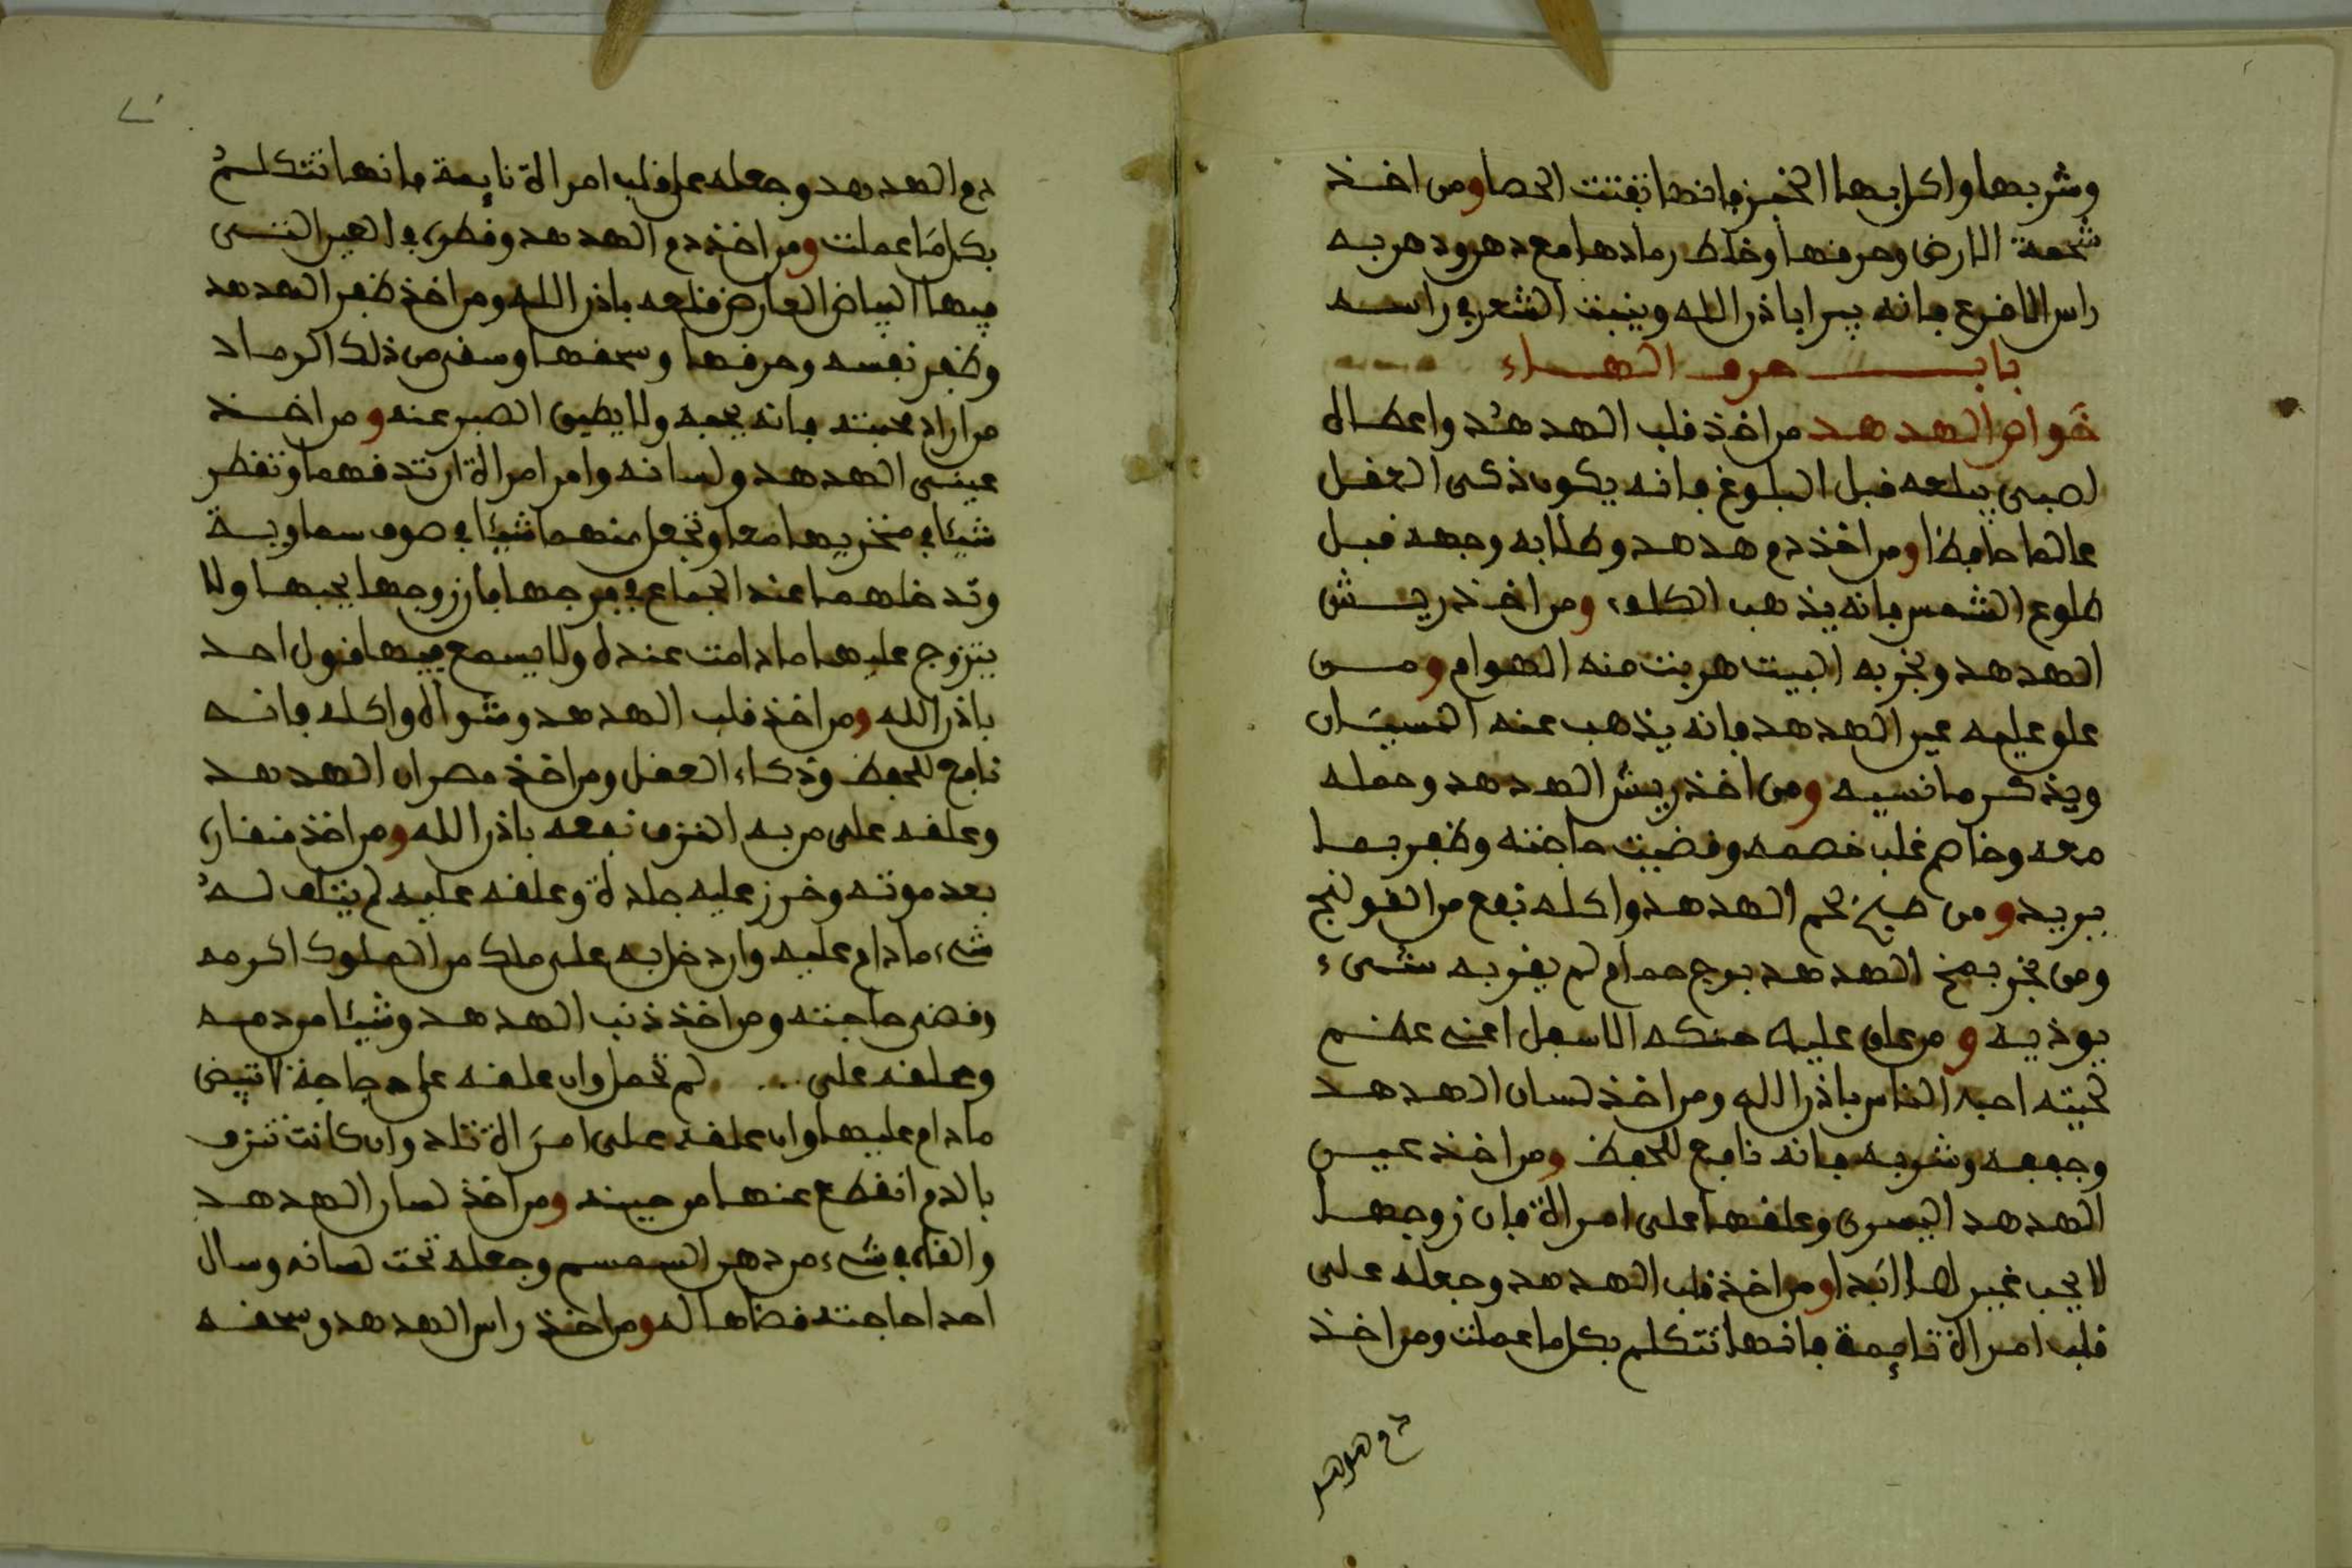 وشربها واكل بها الخبز فانها تفتت الحصا ومن اخذ
شحمة الارض وحرقها وخلط رمادها مع دهن ودهن به
راس الاقرع فانه يبرا باذن الله وينبت الشعر في راسه
باب حرف الهاء
خواص الهدهد من اخذ قلب الهدهد واعطاه
لصبي يبلعه قبل البلوغ فانه يكون ذكي العقل
عالما حافظا ومن اخذ دم هدهد وطلا به وجهه قبل
طلوع الشمس فانه يذهب الكلف ومن اخذ ريش
الهدهد وبخر به البيت هربت منه الهوام ومن
علق عليه عين الهدهد فانه يذهب عنه النسيان
ويذكر ما نسيه ومن اخذ ريش الهدهد وحمله
معه وخاصم غلب خصمه وقضيت حاجته وظفر بما
يريد ومن طبخ لحم الهدهد واكله نفع من القولنج
ومن بخر بمخ الهدهد برج حمام لم يقربه شيء
يوذيه ومن علق عليه حنكه الاسفل اعني عظم
لحيته احبه الناس باذن الله ومن اخذ لسان الهدهد
وجففه وشربه فانه نافع للحفظ ومن اخذ عين
الهدهد اليسرى وعلقها على امراة فان زوجها
لا يحب غيرها ابدا ومن اخذ قلب الهدهد وجعله على
قلب امراة نايمة فانها تتكلم بكل ما عملت ومن اخذ
دم هدهد
دم الهدهد وجعله على قلب امراة نايمة فانها تتكلم
بكل ما عملت ومن اخذ دم الهدهد وقطره في العين التي
فيها البياض العارض قلعه باذن الله ومن اخذ ظفر الهدهد
وظفر نفسه وحرقها وسحقها وسقى من ذلك الرماد
من اراد محبته فانه يحبه ولا يطيق الصبر عنه ومن اخذ
عيني الهدهد ولسانه وامر امراة ان تدقهما وتقطر
شيئا في منخريها معا وتجعل منهما شيئا في صوف سماوية
وتدخلهما عند الجماع في فرجها فان زوجها يحبها ولا
يتزوج عليها ما دامت عنده ولا يسمع فيها قول احد
باذن الله ومن اخذ قلب الهدهد وشواه واكله فانه
نافع للحفظ وذكاء العقل ومن اخذ مصران الهدهد
وعلقه على من به النزف نفعه باذن الله ومن اخذ منقاره
بعد موته وخرز عليه جلدة وعلقه عليه لم يتلف له
شيء ما دام عليه وان دخل به على ملك من الملوك اكرمه
وقضى حاجته ومن اخذ ذنب الهدهد وشيئا من دمه
وعلقه على ... لم تحمل وان علقه على دجاجة لا تبيض
ما دام عليها وان علقه على امراة تلد وان كانت تنزف
بالدم انقطع عنها من حينه ومن اخذ لسان الهدهد
والقاه في شيء من دهن السمسم وجعله تحت لسانه وسال
احدا حاجته قضاها له ومن اخذ راس الهدهد وسحقه